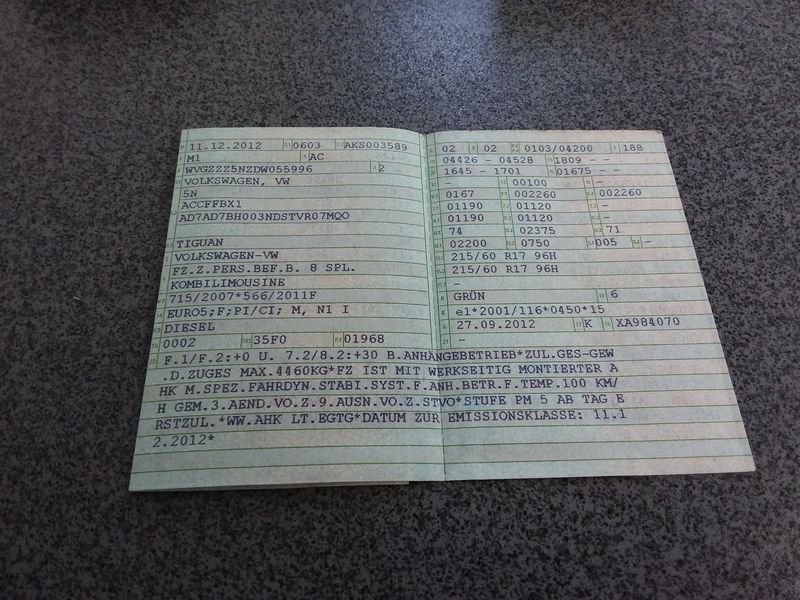 11.12.2012 0603 AKS003589
M1 AC
WVGZZZ5NZDW055996 2
VOLKSWAGEN, VW
5N
ACCFFBX1
AD7AD7BH003NDSTVR07MQO
TIGUAN
VOLKSWAGEN-VW
FZ.Z.PERS.BEF.B. 8 SPL.
KOMBILIMOUSINE
715/2007*566/2011F
EURO5;F;PI/CI; M, N1 I
DIESEL
0002 35F0 01968
02 02 0103/04200 188
04426 - 04528 1809 - -
1645 - 1701 01675 - -
- 00100 -
0167 002260 002260
01190 01120 -
01190 01120 -
74 02375 71
02200 0750 005 -
215/60 R17 96H
215/60 R17 96H
-
GRÜN 6
e1*2001/116*0450*15
27.09.2012 K XA984070
-
F.1/F.2:+0 U. 7.2/8.2:+30 B.ANHÄNGEBETRIEB*ZUL.GES-GEW
.D.ZUGES MAX.4460KG*FZ IST MIT WERKSEITIG MONTIERTER A
HK M.SPEZ.FAHRDYN.STABI.SYST.F.ANH.BETR.F.TEMP.100 KM/
H GEM.3.AEND.VO.Z.9.AUSN.VO.Z.STVO*STUFE PM 5 AB TAG E
RSTZUL.*WW.AHK LT.EGTG*DATUM ZUR EMISSIONSKLASSE: 11.1
2.2012*